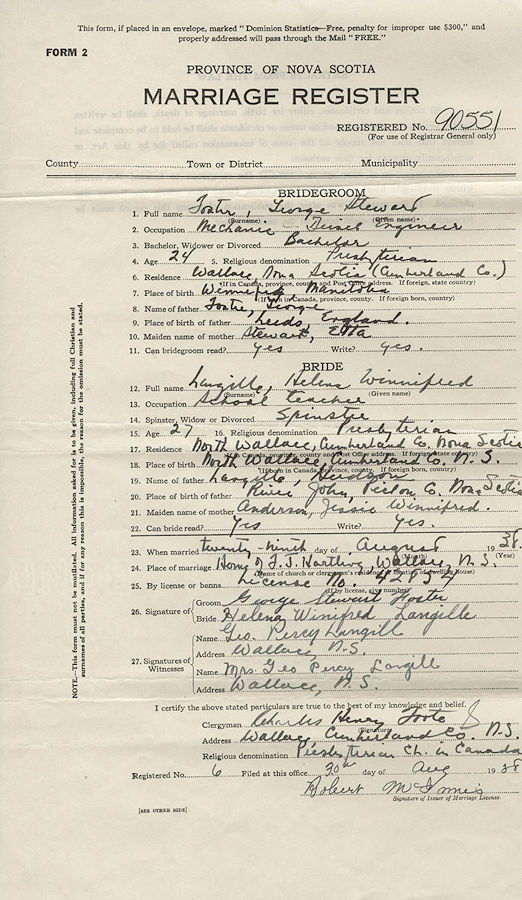 This form, if placed in an envelope, marked "Dominion Statistics—Free, penalty for improper use $300," and
properly addressed will pass through the Mail "FREE."
FORM 2
PROVINCE OF NOVA SCOTIA
MARRIAGE REGISTER
REGISTERED No. 90551
(For use of Registrar General only)
County Town or District Municipality
BRIDEGROOM
1. Full name Foster, George Stewart
(Surname) (Given name)
2. Occupation Mechanic - Diesel Engineer
3. Bachelor, Widower or Divorced Bachelor
4. Age 24 5. Religious denomination Presbyterian
6. Residence Wallace, Nova Scotia (Cumberland Co.)
(If in Canada, province, county and Post Office address. If foreign, state country)
7. Place of birth Winnipeg, Manitoba
(If born in Canada, province, county. If foreign born, country)
8. Name of father Foster, George
9. Place of birth of father Leeds, England.
10. Maiden name of mother Stewart, Etta
11. Can bridegroom read? yes Write? yes.
BRIDE
12. Full name Langille, Helena Winnifred
(Surname) (Given name)
13. Occupation School teacher
14. Spinster, Widow or Divorced Spinster
15. Age 27 16. Religious denomination Presbyterian
17. Residence North Wallace, Cumberland Co. Nova Scotia
(If in Canada, province, county and Post Office address. If foreign, state country)
18. Place of birth North Wallace, Cumberland Co. N. S.
(If born in Canada, province, county. If foreign born, country)
19. Name of father Langille,
20. Place of birth of father River John, Pictou Co. Nova Scotia
21. Maiden name of mother Anderson, Jessie Winnifred.
22. Can bride read? Yes Write? yes.
23. When married twenty-ninth day of August 1938.
(Month) (Year)
24. Place of marriage Home of Wallace, N. S.
25. By license or banns License No. 42652
(If by license, give number)
26. Signature of
Groom George Stewart Foster
Bride Helena Winifred Langille
27. Signatures of Witnesses
Name Geo. Percy Langill
Address Wallace, N.S.
Name Mrs. Geo Percy Langill
Address Wallace, N.S.
I certify the above stated particulars are true to the best of my knowledge and belief.
Clergyman Charles Henry Foote
(Signature)
Address Wallace, Cumberland Co. N.S.
Religious denomination Presbyterian Ch. in Canada
Registered No. 6 Filed at this office 30th day of Aug 1938
Robert McInnis
Signature of Issuer of Marriage License.
[SEE OTHER SIDE]
NOTE.—This form must not be mutilated. All information asked for is to be given, including full Christian and
surnames of all parties, and if for any reason this is impossible, the reason for the omission must be stated.